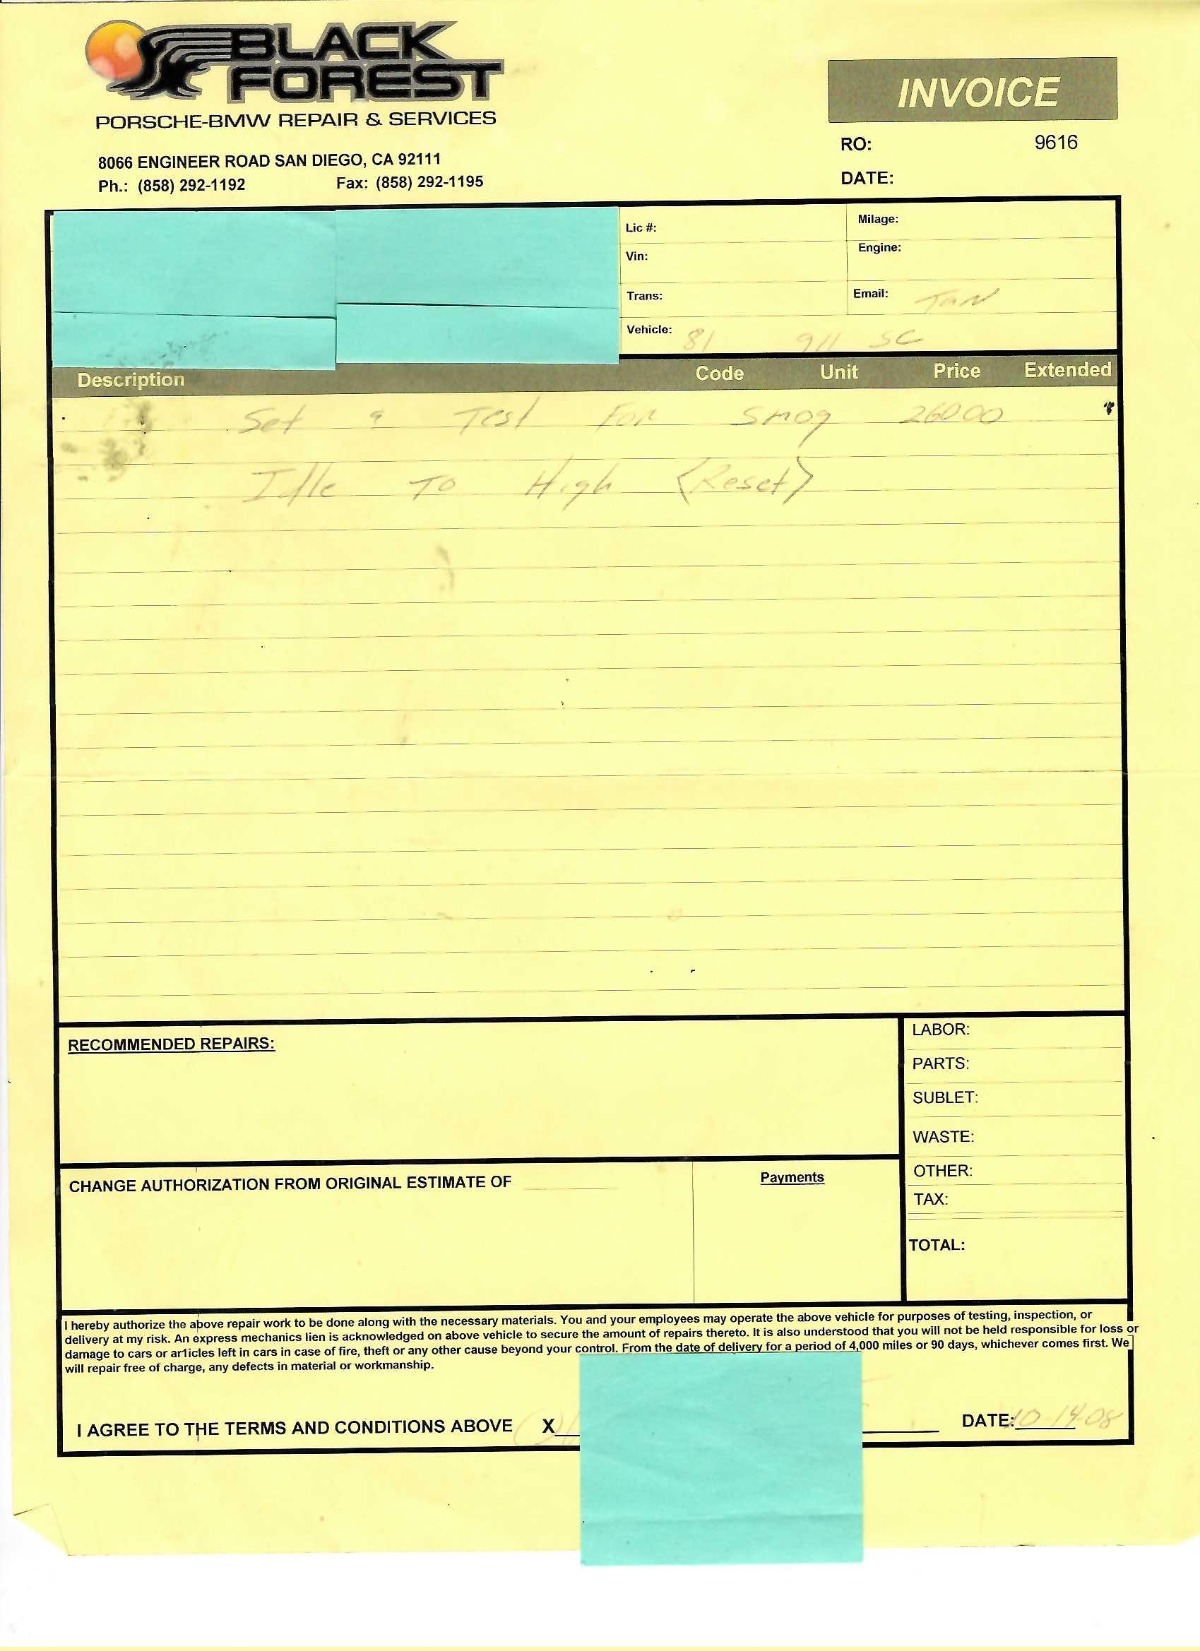 BLACK
FOREST
PORSCHE-BMW REPAIR & SERVICES
8066 ENGINEER ROAD SAN DIEGO, CA 92111
Ph.: (858) 292-1192 Fax: (858) 292-1195
INVOICE
RO: 9616
DATE:
Lic #: Milage:
Vin: Engine:
Trans: Email: TAN
Vehicle: 81 911 SC
Description Code Unit Price Extended
Set & Test For Smog 260.00
Idle To High (Reset)
RECOMMENDED REPAIRS:
LABOR:
PARTS:
SUBLET:
WASTE:
OTHER:
TAX:
TOTAL:
CHANGE AUTHORIZATION FROM ORIGINAL ESTIMATE OF
Payments
I hereby authorize the above repair work to be done along with the necessary materials. You and your employees may operate the above vehicle for purposes of testing, inspection, or
delivery at my risk. An express mechanics lien is acknowledged on above vehicle to secure the amount of repairs thereto. It is also understood that you will not be held responsible for loss or
damage to cars or articles left in cars in case of fire, theft or any other cause beyond your control. From the date of delivery for a period of 4,000 miles or 90 days, whichever comes first. We
will repair free of charge, any defects in material or workmanship.
I AGREE TO THE TERMS AND CONDITIONS ABOVE X DATE: 10-14-08